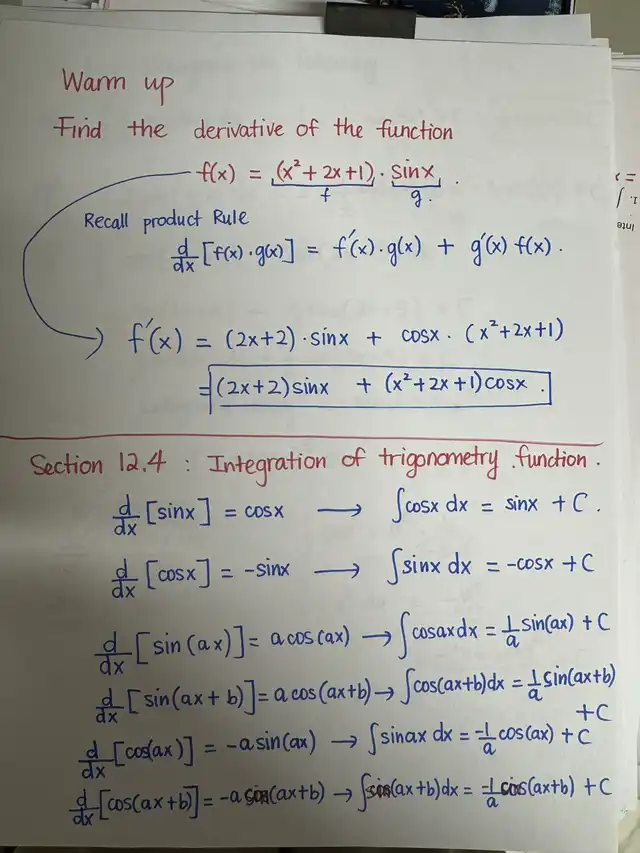 Warm up
Find the derivative of the function
f(x) = (x² + 2x + 1) · sinx .
f g.
Recall product Rule
d/dx [f(x) · g(x)] = f′(x) · g(x) + g′(x) f(x) .
f′(x) = (2x+2) · sinx + cosx · (x² + 2x + 1)
= (2x+2) sinx + (x² + 2x + 1) cosx .
Section 12.4 : Integration of trigonometry function .
d/dx [sinx] = cosx → ∫cosx dx = sinx + C .
d/dx [cosx] = -sinx → ∫sinx dx = -cosx + C
d/dx [sin(ax)] = a cos(ax) → ∫cosax dx = 1/a sin(ax) + C
d/dx [sin(ax + b)] = a cos(ax+b) → ∫cos(ax+b)dx = 1/a sin(ax+b)
+ C
d/dx [cos(ax)] = -a sin(ax) → ∫sinax dx = -1/a cos(ax) + C
d/dx [cos(ax+b)] = -a sin(ax+b) → ∫sin(ax+b)dx = -1/a cos(ax+b) + C